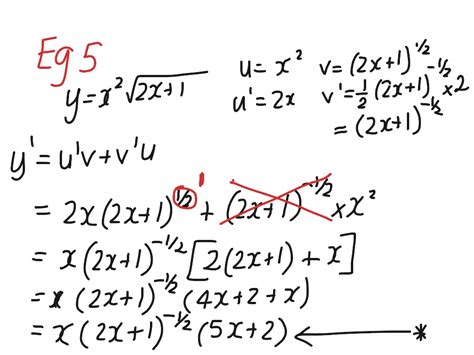 Eg 5
y = x² √(2x+1)
u = x² v = (2x+1)^½
u' = 2x v' = ½ (2x+1)^-½ × 2
= (2x+1)^-½
y' = u'v + v'u
= 2x(2x+1)^½ ' + (2x+1)^-½ × x²
= x(2x+1)^-1/2 [2(2x+1) + x]
= x (2x+1)^-½ (4x+2+x)
= x(2x+1)^-½ (5x+2) ← *